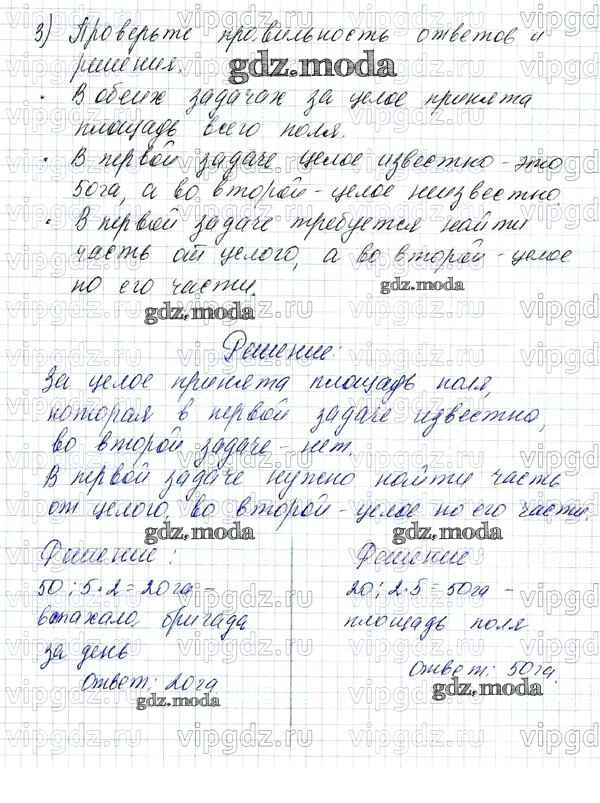 3) Проверьте правильность ответов и
решения.
gdz.moda
· В обеих задачах за целое принята
площадь всего поля.
· В первой задаче целое известно - это
50га, а во второй - целое неизвестно.
· В первой задаче требуется найти
часть от целого, а во второй - целое
по его части.
gdz.moda
gdz.moda
Решение:
За целое принята площадь поля,
которая в первой задаче известно,
во второй задаче - нет.
В первой задаче нужно найти часть
от целого, во второй - целое по его части.
gdz.moda
gdz.moda
Решение:
50 : 5 · 2 = 20га -
вспахало бригада
за день
Ответ: 20га
gdz.moda
Решение
20 : 2 · 5 = 50га -
площадь поля
Ответ: 50га.
gdz.moda
vipgdz.ru